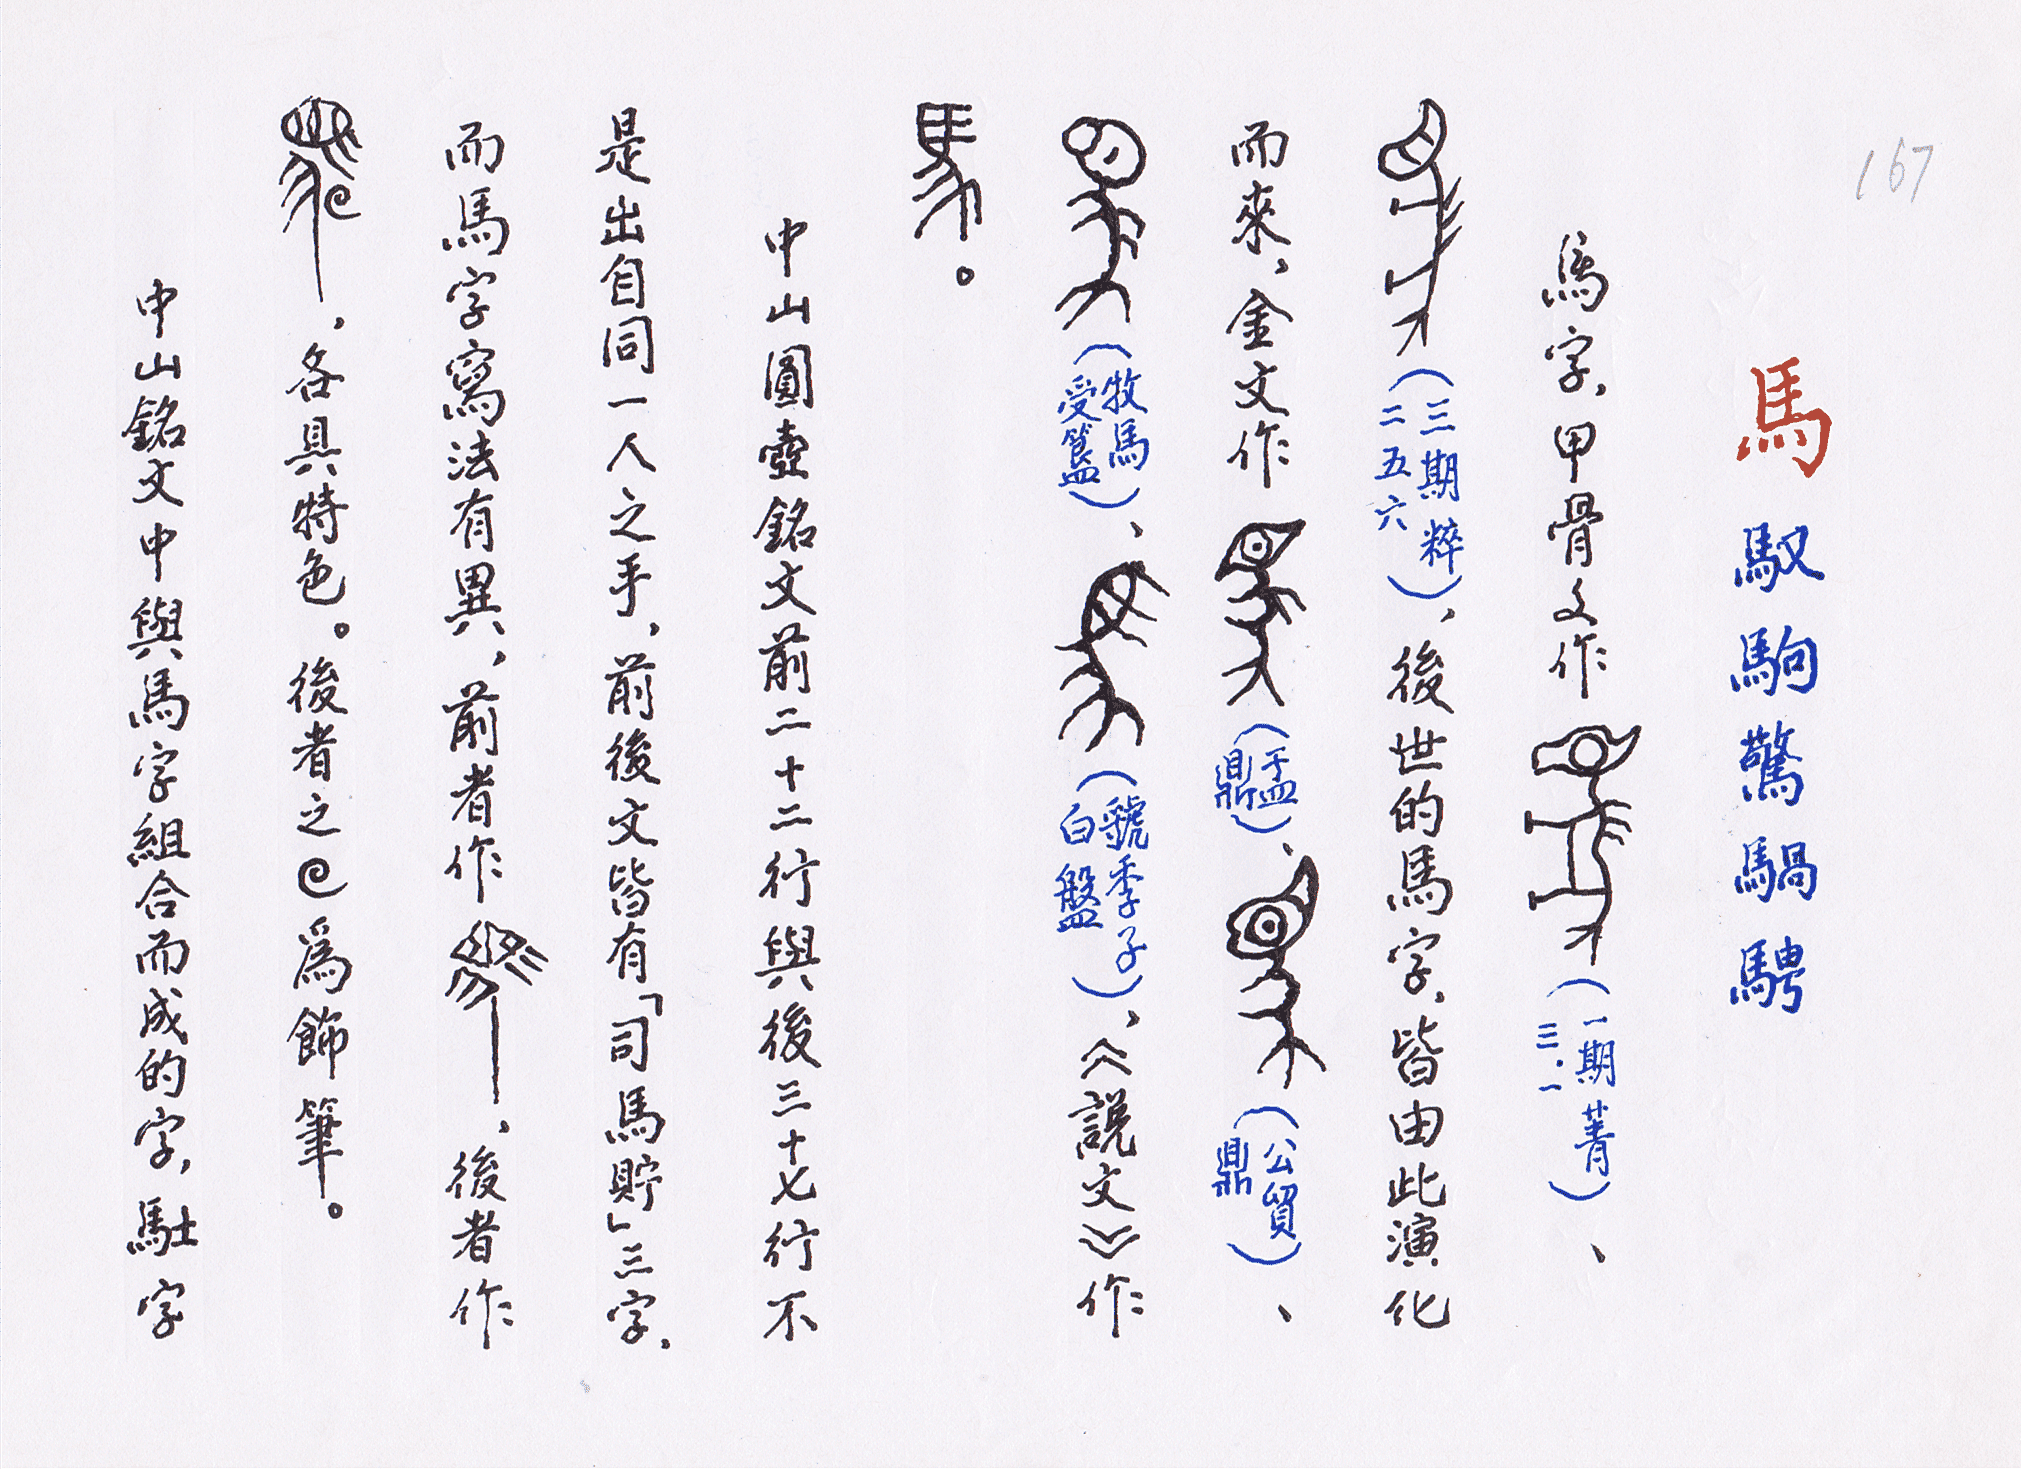 167
馬 馭駒驚騧騁
馬字，甲骨文作（一期菁三．一）、
（三期粹二五六），後世的馬字，皆由此演化
而來，金文作（盂鼎）、（公貿鼎）、
（牧馬受簋）、（虢季子白盤），《說文》作
。
中山圓壺銘文前二十二行與後三十七行不
是出自同一人之手，前後文皆有「司馬貯」三字，
而馬字寫法有異，前者作，後者作
，各具特色。後者之為飾筆。
中山銘文中與馬字組合而成的字，駐字